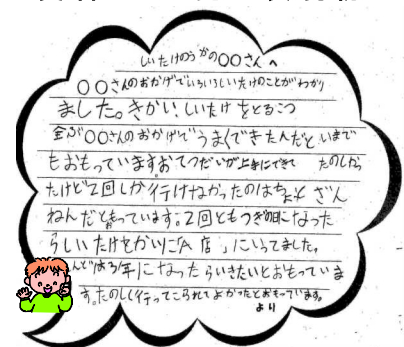 しいたけのうかの〇〇さんへ
〇〇さんのおかげでいろいろしいたけのことがわかり
ました。きかい、しいたけをとるこつ
全ぶ〇〇さんのおかげでうまくできたんだといまで
もおもっていますおてつだいが上手にできて たのしかっ
たけど2回しか行けなかったのはちょっとざん
ねんだとおもっています。2回ともつぎの日になった
らしいたけをかいに「A店」にいってました。
んどは3年になったらいきたいとおもっていま
す。たのしく行ってこられてよかったとおもっています。
より